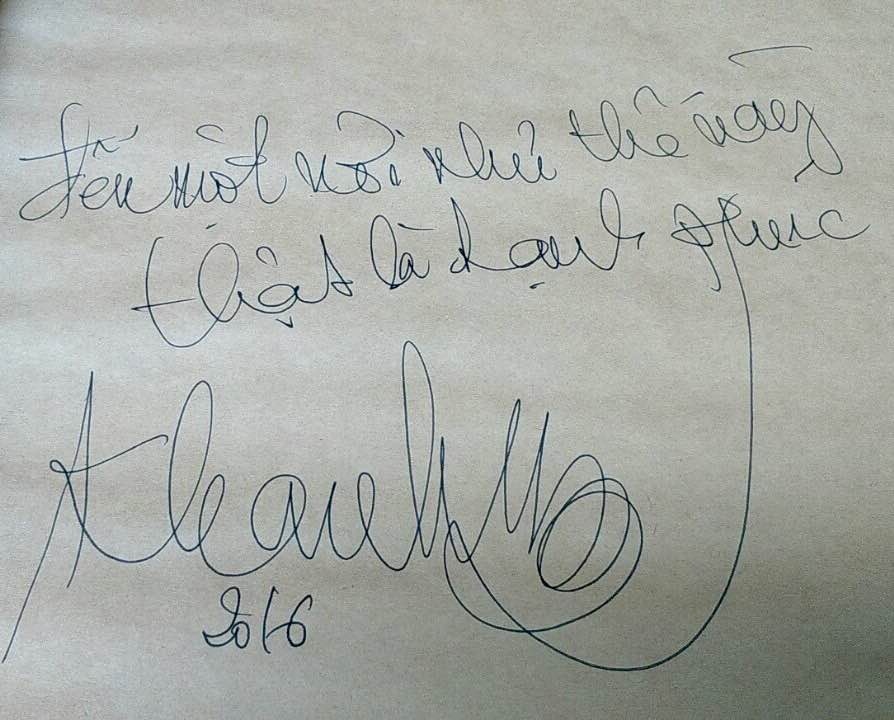 Đến một nơi như thế này
thật là hạnh phúc
Thanh
2016